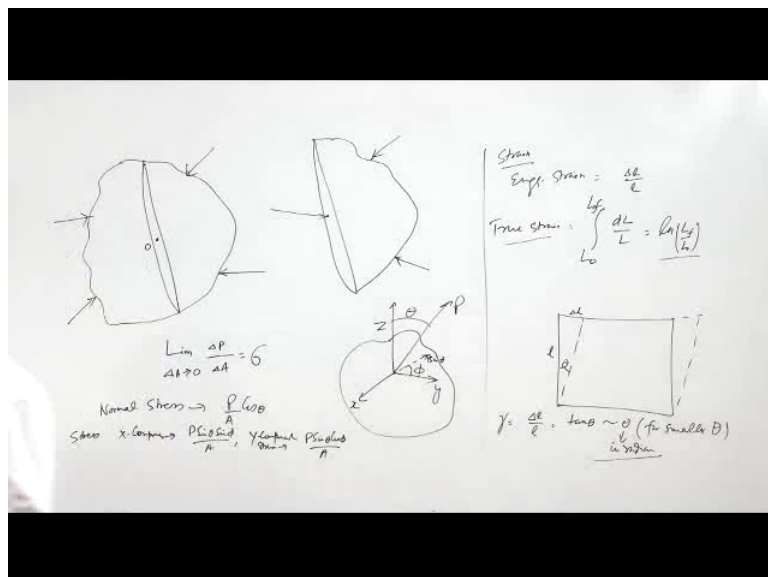 O
Lim ΔP/ΔA = б
ΔA→0
Normal Stress → P/A Cosθ
Stress x-Compon→ PSinθSinϕ/A, y-Compont PSinθCosϕ/A
Z
θ
P
PSinθ
ϕ
x
y
Strain
Engg. Strain = Δl/l
True Strain = ∫ dL/L = ln(Lf/L0)
Lf
L0
Δl
l
θ
γ = Δl/l = tanθ ~ θ (for smaller θ)
in radian